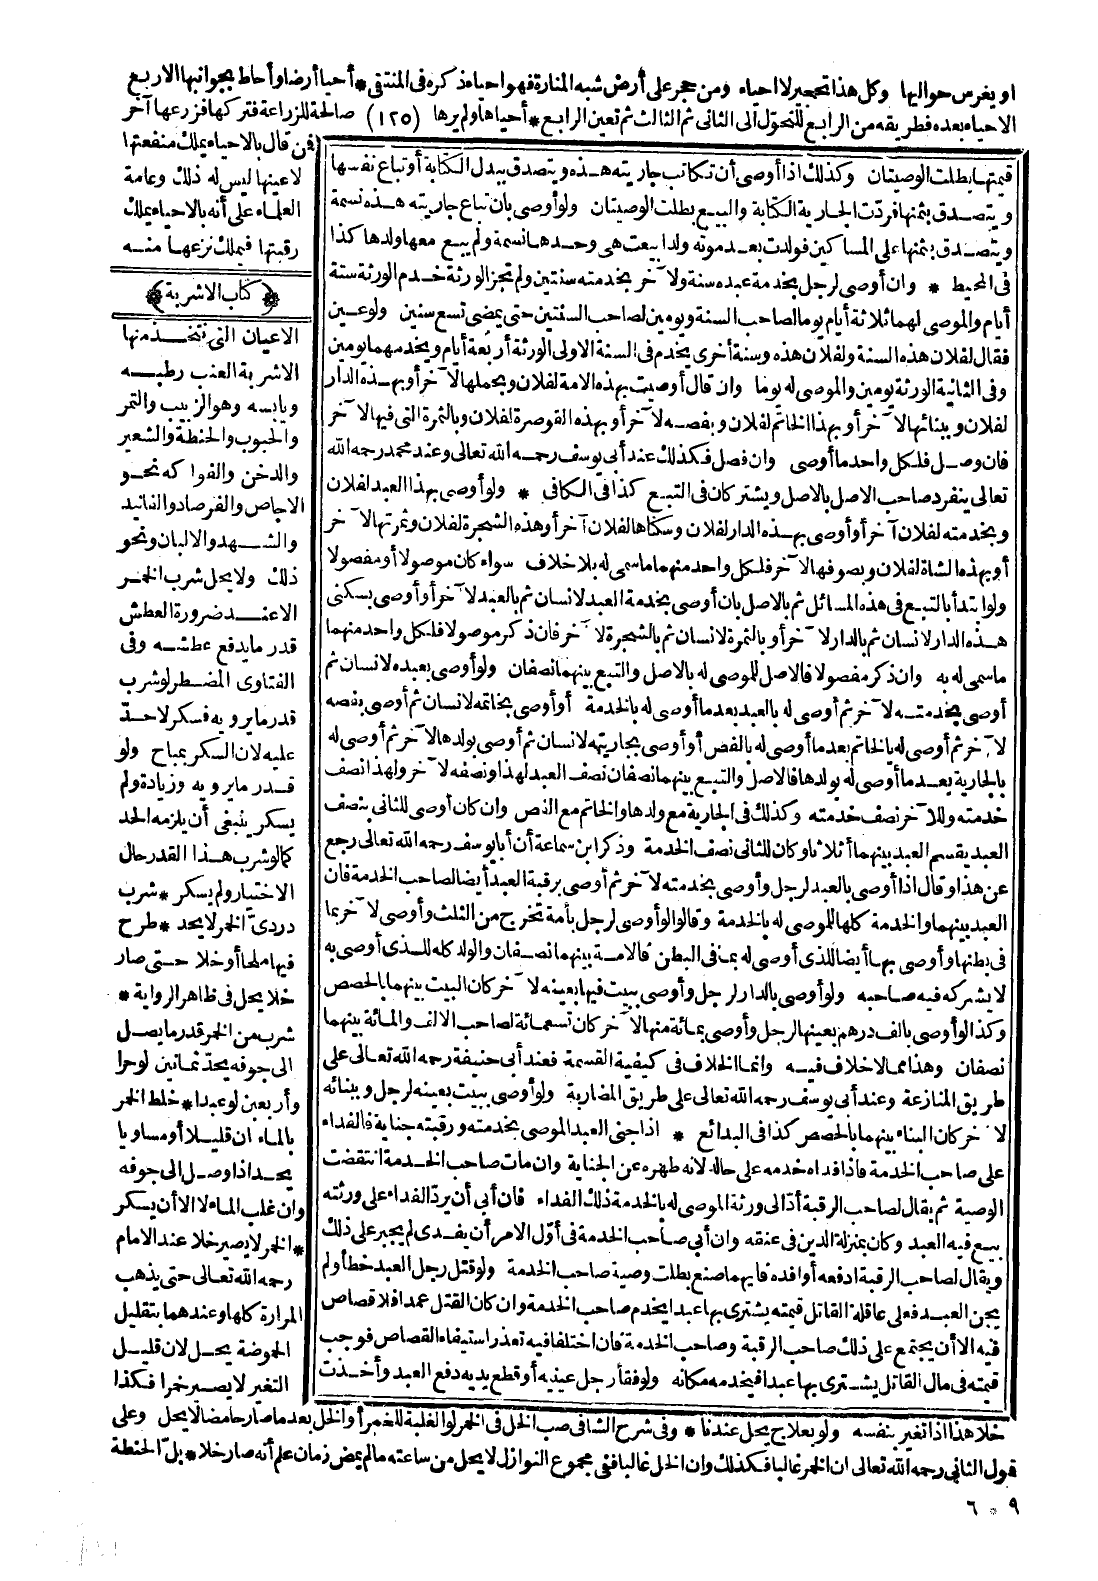 او يغرس حواليها وكل هذا تحجير لا احياء ومن حجر على أرض شبه المنارة فهو احياء ذكره فى المنتقى * أحيا أرضا وأحاط بجوانبها الاربع
الاحياء بعده فطريقه من الرابع للتحوّل الى الثانى ثم الثالث ثم تعين الرابع * أحياها ولم يرها (١٢٥) صالحة للزراعة فتركها فزرعها آخر
قيمتها بطلت الوصيتان وكذلك اذا أوصى أن تكاتب جاريته هذه ويتصدق ببدل الكتابة أو تباع نفسها
ويتصدق بثمنها فردّت الجارية الكتابة والبيع بطلت الوصيتان ولو أوصى بان تباع جاريته هذه نسمة
ويتصدق بثمنها على المساكين فولدت بعد موته ولدا بيعت هى وحدها نسمة ولم يبع معها ولدها كذا
فى المحيط * وان أوصى لرجل بخدمة عبده سنة ولآخر بخدمته سنتين ولم تجز الورثة خدم الورثة ستة
أيام والموصى لهما ثلاثة أيام يوما لصاحب السنة ويومين لصاحب السنتين حتى يمضى تسع سنين ولو عين
فقال لفلان هذه السنة ولفلان هذه وسنة أخرى يخدم فى السنة الاولى الورثة أربعة أيام ويخدمهما يومين
وفى الثانية الورثة يومين والموصى له يوما وان قال أوصيت بهذه الامة لفلان وبحملها لآخر أو بهذه الدار
لفلان وببنائها لآخر أو بهذا الخاتم لفلان وبفصه لآخر أو بهذه القوصرة لفلان وبالثمرة التى فيها لآخر
فان وصل فلكل واحد ما أوصى وان فصل فكذلك عند أبى يوسف رحمه الله تعالى وعند محمد رحمه الله
تعالى ينفرد صاحب الاصل بالاصل ويشتركان فى التبع كذا فى الكافى * ولو أوصى بهذا العبد لفلان
وبخدمته لفلان آخر أو أوصى بهذه الدار لفلان وسكناها لفلان آخر أو هذه الشجرة لفلان وثمرتها لآخر
أو بهذه الشاة لفلان وبصوفها لآخر فلكل واحد منهما ما سمى له بلا خلاف سواء كان موصولا أو مفصولا
ولو ابتدأ بالتبع فى هذه المسائل ثم بالاصل بان أوصى بخدمة العبد لانسان ثم بالعبد لآخر أو أوصى بسكنى
هذه الدار لانسان ثم بالدار لآخر أو بالثمرة لانسان ثم بالشجرة لآخر فان ذكر موصولا فلكل واحد منهما
ما سمى له به وان ذكر مفصولا فالاصل للموصى له بالاصل والتبع بينهما نصفان ولو أوصى بعبده لانسان ثم
أوصى بخدمته لآخر ثم أوصى له بالعبد بعد ما أوصى له بالخدمة أو أوصى بخاتمه لانسان ثم أوصى بفصه
لآخر ثم أوصى له بالخاتم بعد ما أوصى له بالفص أو أوصى بجاريته لانسان ثم أوصى بولدها لآخر ثم أوصى له
بالجارية بعد ما أوصى له بولدها فالاصل والتبع بينهما نصفان نصف العبد لهذا ونصفه لآخر ولهذا نصف
خدمته وللآخر نصف خدمته وكذلك فى الجارية مع ولدها والخاتم مع الفص وان كان أوصى للثانى بنصف
العبد يقسم العبد بينهما أثلاثا وكان للثانى نصف الخدمة وذكر ابن سماعة أن أبا يوسف رحمه الله تعالى رجع
عن هذا وقال اذا أوصى بالعبد لرجل وأوصى بخدمته لآخر ثم أوصى برقبة العبد أيضا لصاحب الخدمة فان
العبد بينهما والخدمة كلها للموصى له بالخدمة وقالوا لو أوصى لرجل بأمة تخرج من الثلث وأوصى لآخر بما
فى بطنها وأوصى بها أيضا للذى أوصى له بما فى البطن فالامة بينهما نصفان والولد كله للذى أوصى به
لا يشركه فيه صاحبه ولو أوصى بالدار لرجل وأوصى ببيت فيها بعينه لآخر كان البيت بينهما بالحصص
وكذا لو أوصى بالف درهم بعينها لرجل وأوصى بمائة منها لآخر كان تسعمائة لصاحب الالف والمائة بينهما
نصفان وهذا مما لا خلاف فيه وانما الخلاف فى كيفية القسمة فعند أبى حنيفة رحمه الله تعالى على
طريق المنازعة وعند أبى يوسف رحمه الله تعالى على طريق المضاربة ولو أوصى ببيت بعينه لرجل وببنائه
لآخر كان البناء بينهما بالحصص كذا فى البدائع * اذا جنى العبد الموصى بخدمته ورقبته جناية فالفداء
على صاحب الخدمة فاذا فداه خدمه على حاله لانه طهره عن الجناية وان مات صاحب الخدمة انتقضت
الوصية ثم يقال لصاحب الرقبة أدّ الى ورثة الموصى له بالخدمة ذلك الفداء فان أبى أن يردّ الفداء على ورثته
بيع فيه العبد وكان بمنزلة الدين فى عنقه وان أبى صاحب الخدمة فى أوّل الامر أن يفدى لم يجبر على ذلك
ويقال لصاحب الرقبة ادفعه أو افده فايهما صنع بطلت وصية صاحب الخدمة ولو قتل رجل العبد خطأ ولم
يجن العبد فعلى عاقلة القاتل قيمته يشترى بها عبدا يخدم صاحب الخدمة وان كان القتل عمدا فلا قصاص
فيه الا أن يجتمع على ذلك صاحب الرقبة وصاحب الخدمة فان اختلفا فيه تعذر استيفاء القصاص فوجب
قيمته فى مال القاتل يشترى بها عبدا فيخدمه مكانه ولو فقأ رجل عينيه أو قطع يديه دفع العبد وأخذت
فمن قال بالاحياء يملك منفعتها
لا عينها ليس له ذلك وعامة
العلماء على أنه بالاحياء يملك
رقبتها فيملك نزعها منه
﴿كتاب الاشربة﴾
الاعيان التى تتخذ منها
الاشربة العنب رطبه
ويابسه وهو الزبيب والتمر
والحبوب والحنطة والشعير
والدخن والفواكه نحو
الاجاص والفرصاد والفانيد
والشهد والالبان ونحو
ذلك ولا يحل شرب الخمر
الا عند ضرورة العطش
قدر ما يدفع عطشه وفى
الفتاوى المضطر لو شرب
قدر ما يرويه فسكر لا حدّ
عليه لان السكر بمباح ولو
قدر ما يرويه وزيادة ولم
يسكر ينبغى أن يلزمه الحد
كما لو شرب هذا القدر حال
الاختيار ولم يسكر * شرب
دردىّ الخمر لا يحد * طرح
فيها ملحا أو خلا حتى صار
خلا يحل فى ظاهر الرواية *
شرب من الخمر قدر ما يصل
الى جوفه يحدّ ثمانين لو حرا
وأربعين لو عبدا * خلط الخمر
بالماء ان قليلا أو مساويا
يحد اذا وصل الى جوفه
وان غلب الماء لا الا أن يسكر
* الخمر لا يصير خلا عند الامام
رحمه الله تعالى حتى يذهب
المرارة كلها وعندهما بتقليل
الحموضة يحل لان قليل
التغير لا يصير خمرا فكذا
خلا هذا اذا تغير بنفسه ولو بعلاج يحل عندنا * وفى شرح الشافى صب الخل فى الخمر لو الغلبة للخمر أو الخل بعد ما صار حامضا لا يحل وعلى
قول الثانى رحمه الله تعالى ان الخمر غالبا فكذلك وان الخل غالبا ففى مجموع النوازل لا يحل من ساعته ما لم يمض زمان علم أنه صار خلا * بلّ الحنطة
٩ * ٦